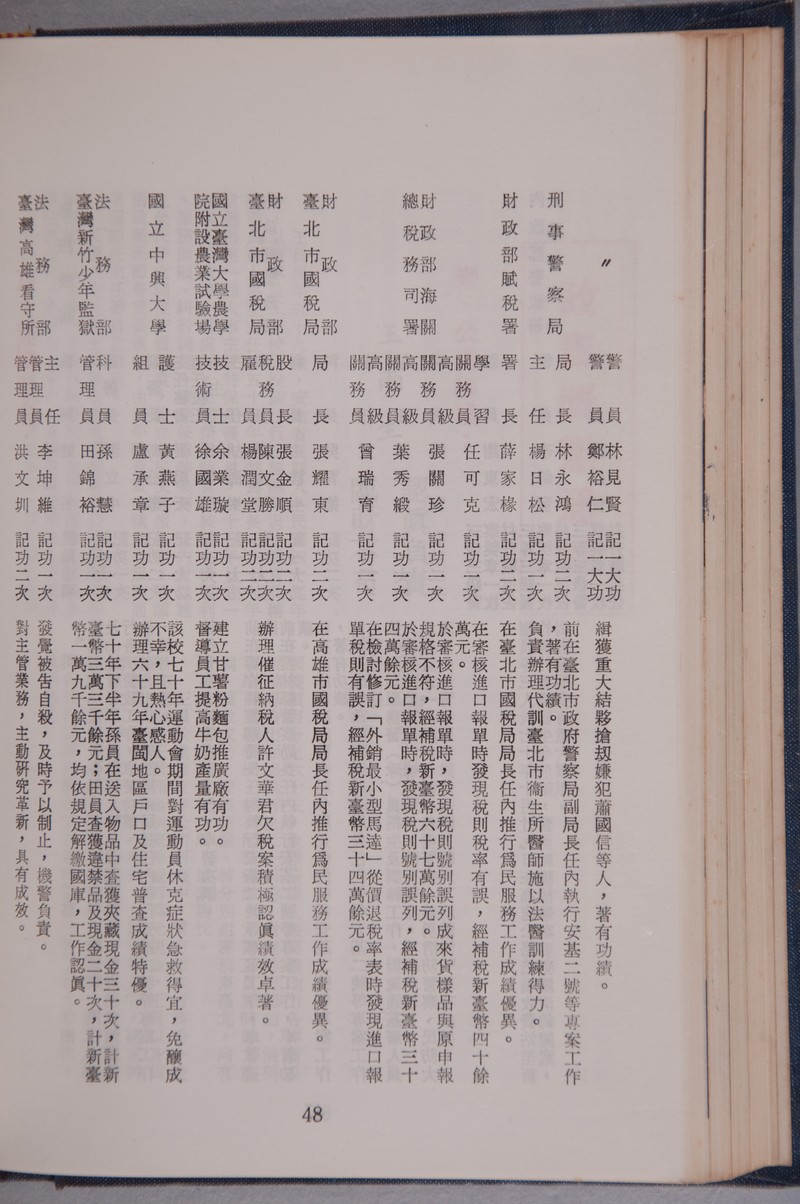 〃 警員 林見賢 記一大功 緝獲重大結夥搶刼嫌犯蕭國信等人，著有功績。
警員 鄭裕仁 記一大功
刑事警察局 局長 林永鴻 記功二次 前在臺北市政府警察局副局長任內執行安基二號等專案工作
，著有功績。
主任 楊日松 記功一次 負責辦理代訓臺北市衞生所醫師施以法醫訓練得力。
財政部賦稅署 署長 薛家椽 記功二次 在臺北市國稅局局長任內推行爲民服務工作成績優異。
財政部海關總稅務司署 學習關務員 任可克 記功一次 在審核進口報單時發現稅則稅率有誤，經補稅新臺幣四十餘
萬元。
高級關務員 張關珍 記功一次 於審核進口報單時，發現稅則號別誤列成來貨樣品與原申報
規格不符，經補稅新臺幣六十七萬餘元。
高級關務員 葉秀緞 記功一次 於審核進口報單時，發現稅則號別誤列，經補稅新臺幣三十
四萬餘元。
高級關務員 曾瑞育 記功一次 在檢討修訂「外銷最小型馬達」從價退稅率表時發現進口報
單稅則有誤，經補稅新臺幣三十四萬餘元。
財政部臺北市國稅局 局長 張耀東 記功二次 在高雄市國稅局局長任內推行爲民服務工作成績優異。
財政部臺北市國稅局 股長 張金順 記功二次 辦理催征納稅人許文華君欠稅案積極認眞績效卓著。
稅務員 陳文勝 記功二次
雇員 楊潤堂 記功二次
國立臺灣大學農學院附設農業試驗場 技士 余業璇 記功一次 建立甘薯粉麵包推廣廠有功。
技術員 徐國雄 記功一次 督導員工提高牛奶產量有功。
國立中興大學 護士 黃燕子 記功一次 該校七十年運動會期間對運動員休克症狀急救得宜，免釀成
不幸，且熱心感人。
組員 盧承章 記功一次 辦理六十九年臺閩地區戶口及住宅普查成績特優。
法務部臺灣新竹少年監獄 科員 孫慧 記功一次 七十年下半年孫員在送入物品中查獲夾藏現金三十次，計新
管理員 田錦裕 記功一次 臺幣三萬三千餘元；田員查獲違禁品及現金二十次，計新臺
幣一萬九千餘元，均依規定解繳國庫，工作認眞。
法務部臺灣高雄看守所 主任管理員 李坤維 記功一次 發覺被告自殺，及時予以制止，機警負責。
管理員 洪文圳 記功二次 對主管業務，主動研究革新，具有成效。
48